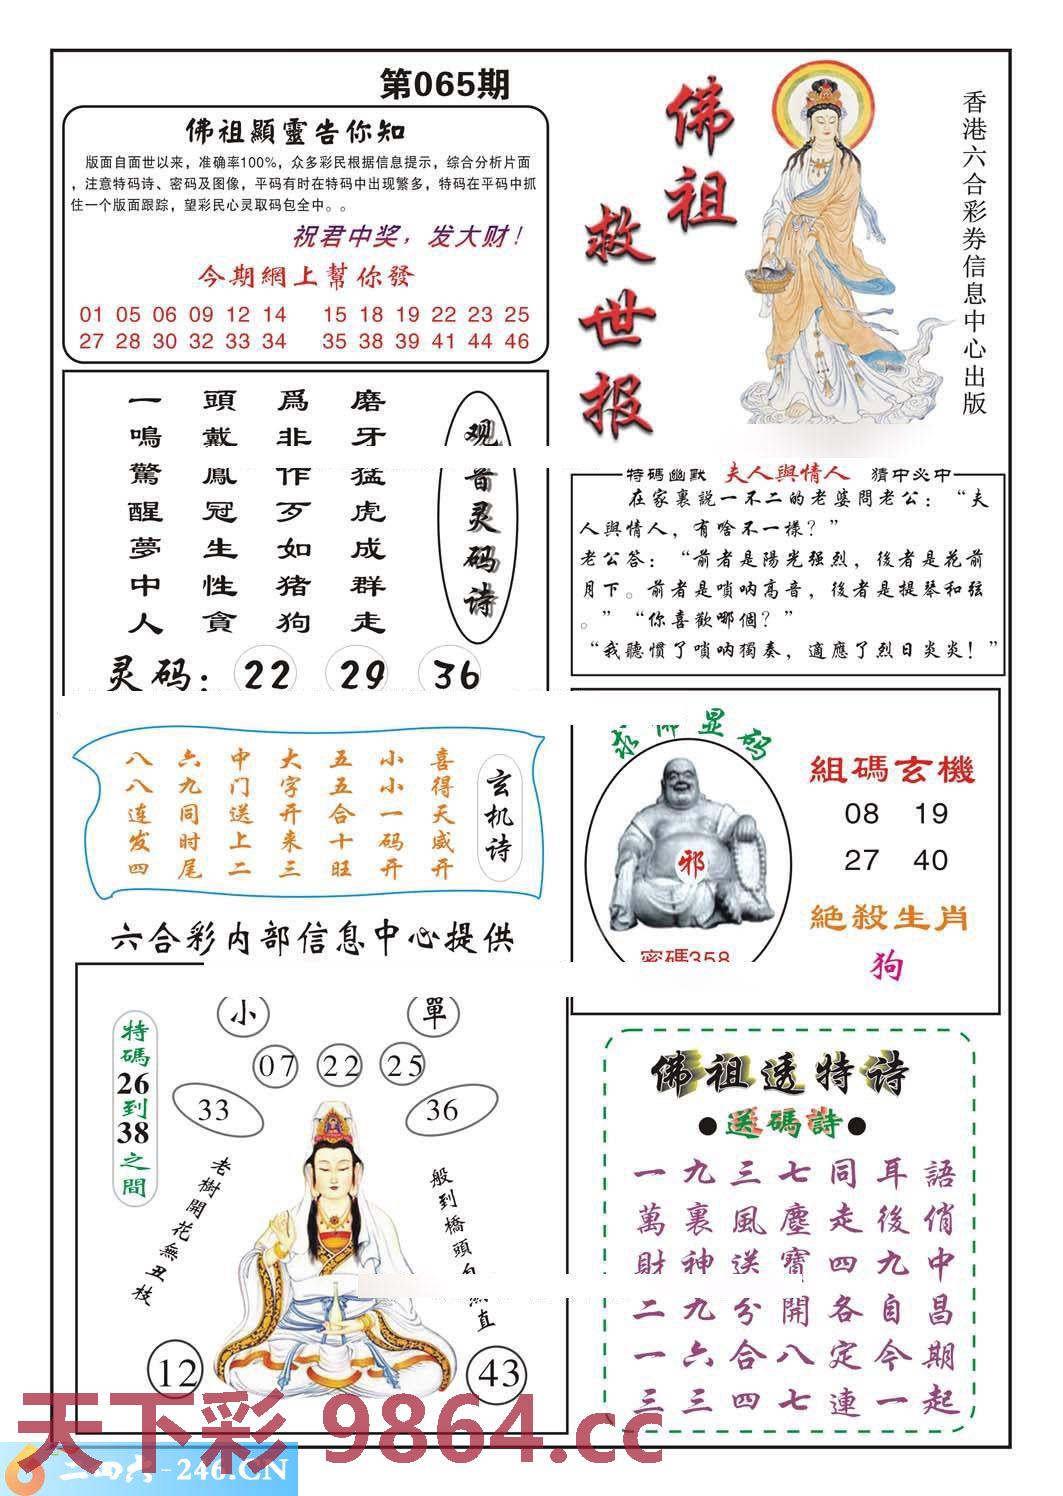 第065期
佛祖顯靈告你知
版面自面世以来，准确率100%，众多彩民根据信息提示，综合分析片面
，注意特码诗、密码及图像，平码有时在特码中出现繁多，特码在平码中抓
住一个版面跟踪，望彩民心灵取码包全中。。
祝君中奖，发大财！
今期網上幫你發
01 05 06 09 12 14 15 18 19 22 23 25
27 28 30 32 33 34 35 38 39 41 44 46
佛祖
救世报
香港六合彩券信息中心出版
观音灵码诗
磨牙猛虎成群走
爲非作歹如猪狗
頭戴鳳冠生性貪
一鳴驚醒夢中人
灵码：22 29 36
特碼幽默 夫人與情人 猜中必中
在家裏説一不二的老婆問老公：“夫
人與情人，有啥不一樣？”
老公答：“前者是陽光强烈，後者是花前
月下。前者是嗩呐高音，後者是提琴和弦
。”“你喜歡哪個？”
“我聽慣了嗩呐獨奏，適應了烈日炎炎！”
玄机诗
喜得天威开
小小一码开
五五合十旺
大字开来三
中门送上二
六九同时尾
八八连发四
六合彩内部信息中心提供
求佛显码
邪
密碼358
組碼玄機
08 19
27 40
絶殺生肖
狗
特碼26到38之間
小
單
07 22 25
33
36
老樹開花無丑枝
般到橋頭自然直
12
43
佛祖透特诗
●送碼詩●
一九三七同耳語
萬裏風塵走後俏
財神送寳四九中
二九分開各自昌
一六合八定今期
三三四七連一起
天下彩 9864.cc
二四六-246.CN